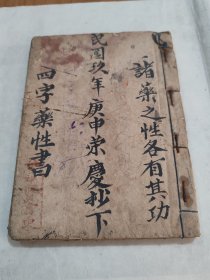 諸藥之性各有其功
民國玖年庚申荣慶抄下
四字藥性書